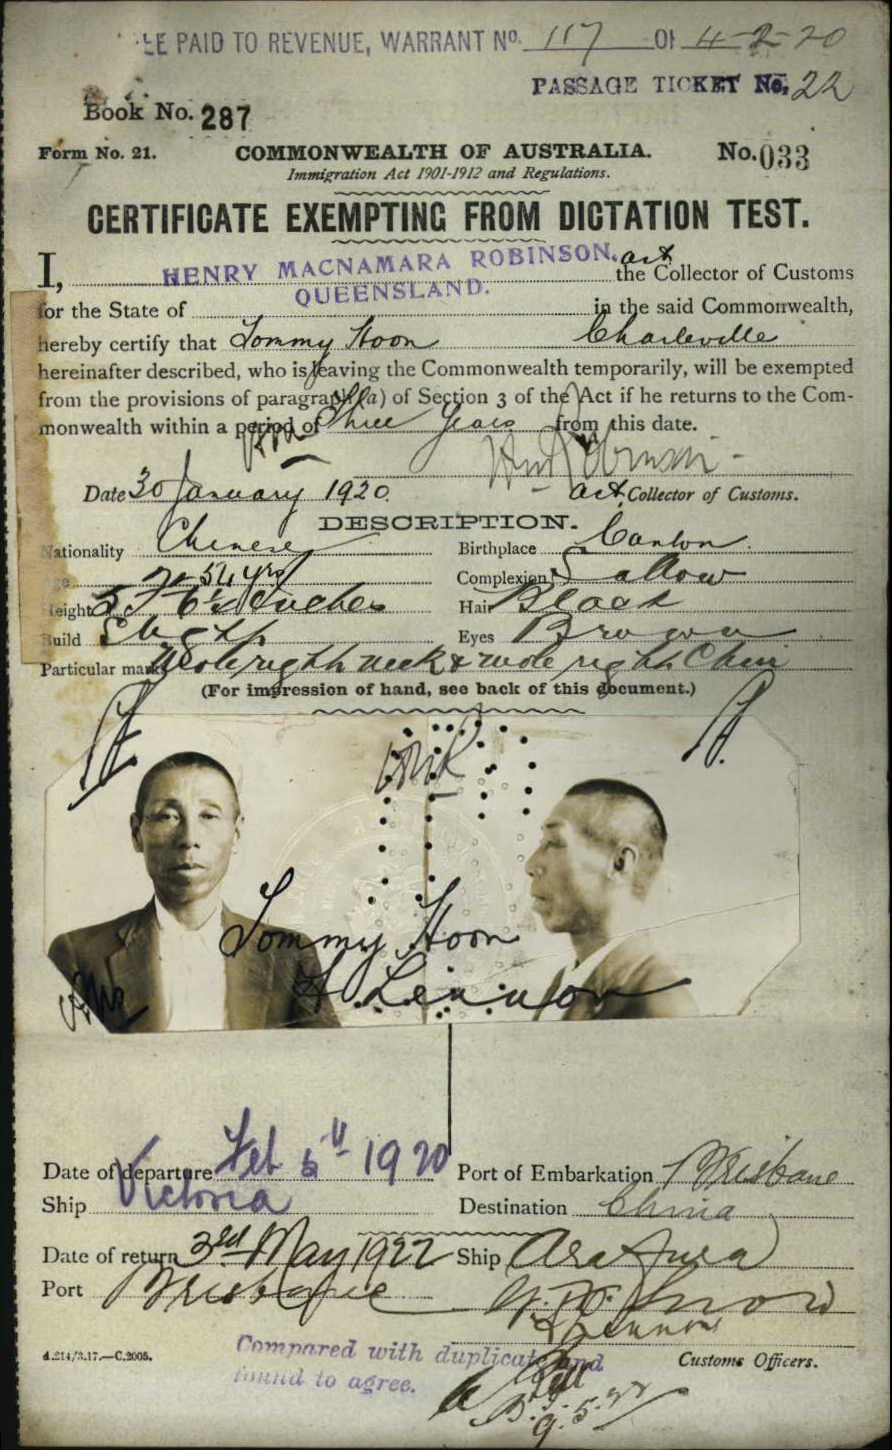 EE PAID TO REVENUE, WARRANT No. 117 OF 4-2-20
PASSAGE TICKET No. 22
Book No. 287
Form No. 21. COMMONWEALTH OF AUSTRALIA. No. 033
Immigration Act 1901-1912 and Regulations.
CERTIFICATE EXEMPTING FROM DICTATION TEST.
I, HENRY MACNAMARA ROBINSON, act the Collector of Customs
for the State of QUEENSLAND. in the said Commonwealth,
hereby certify that Tommy Hoon Charleville
hereinafter described, who is leaving the Commonwealth temporarily, will be exempted
from the provisions of paragraph (a) of Section 3 of the Act if he returns to the Com-
monwealth within a period of Three Years from this date.
HMR
Date 30 January 1920. act Collector of Customs.
DESCRIPTION.
Nationality Chinese Birthplace Canton
Age 54 yrs Complexion Sallow
Height 5 Ft 6 inches Hair Black
Build Eyes Brown
Particular marks Mole right neck & mole right Chin
(For impression of hand, see back of this document.)
HMR
Tommy Hoon
A Lennon
Date of departure Feb 5th 1920 Port of Embarkation Brisbane
Ship Victoria Destination China
Date of return 3rd May 1922 Ship Arafura
Port Brisbane
A Lennon
4.214/3.17.—C.2005. Compared with duplicate and Customs Officers.
found to agree.
9.5.22